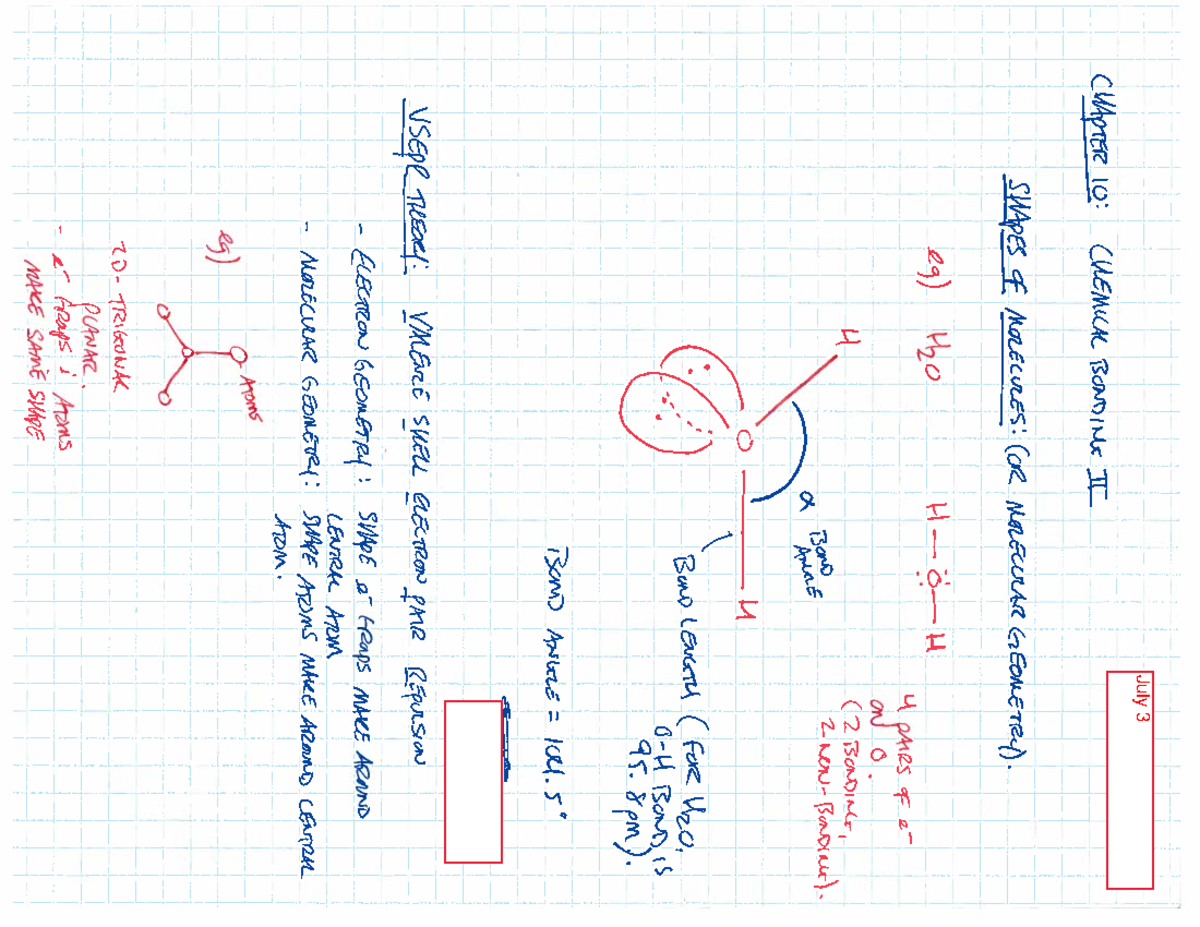 July 3
CHAPTER 10: CHEMICAL BONDING II
SHAPES OF MOLECULES: (OR MOLECULAR GEOMETRY).
eg) H2O H—Ö—H
4 PAIRS OF e-
ON O.
(2 BONDING,
2 NON-BONDING).
H
O
H
α BOND
ANGLE
BOND LENGTH (FOR H2O,
O-H BOND IS
95.8 pm).
BOND ANGLE = 104.5°
VSEPR THEORY: VALENCE SHELL ELECTRON PAIR REPULSION
- ELECTRON GEOMETRY: SHAPE e- GROUPS MAKE AROUND
CENTRAL ATOM
- MOLECULAR GEOMETRY: SHAPE ATOMS MAKE AROUND CENTRAL
ATOM.
eg)
ATOMS
2D- TRIGONAL
PLANAR.
- e- GROUPS & ATOMS
MAKE SAME SHAPE